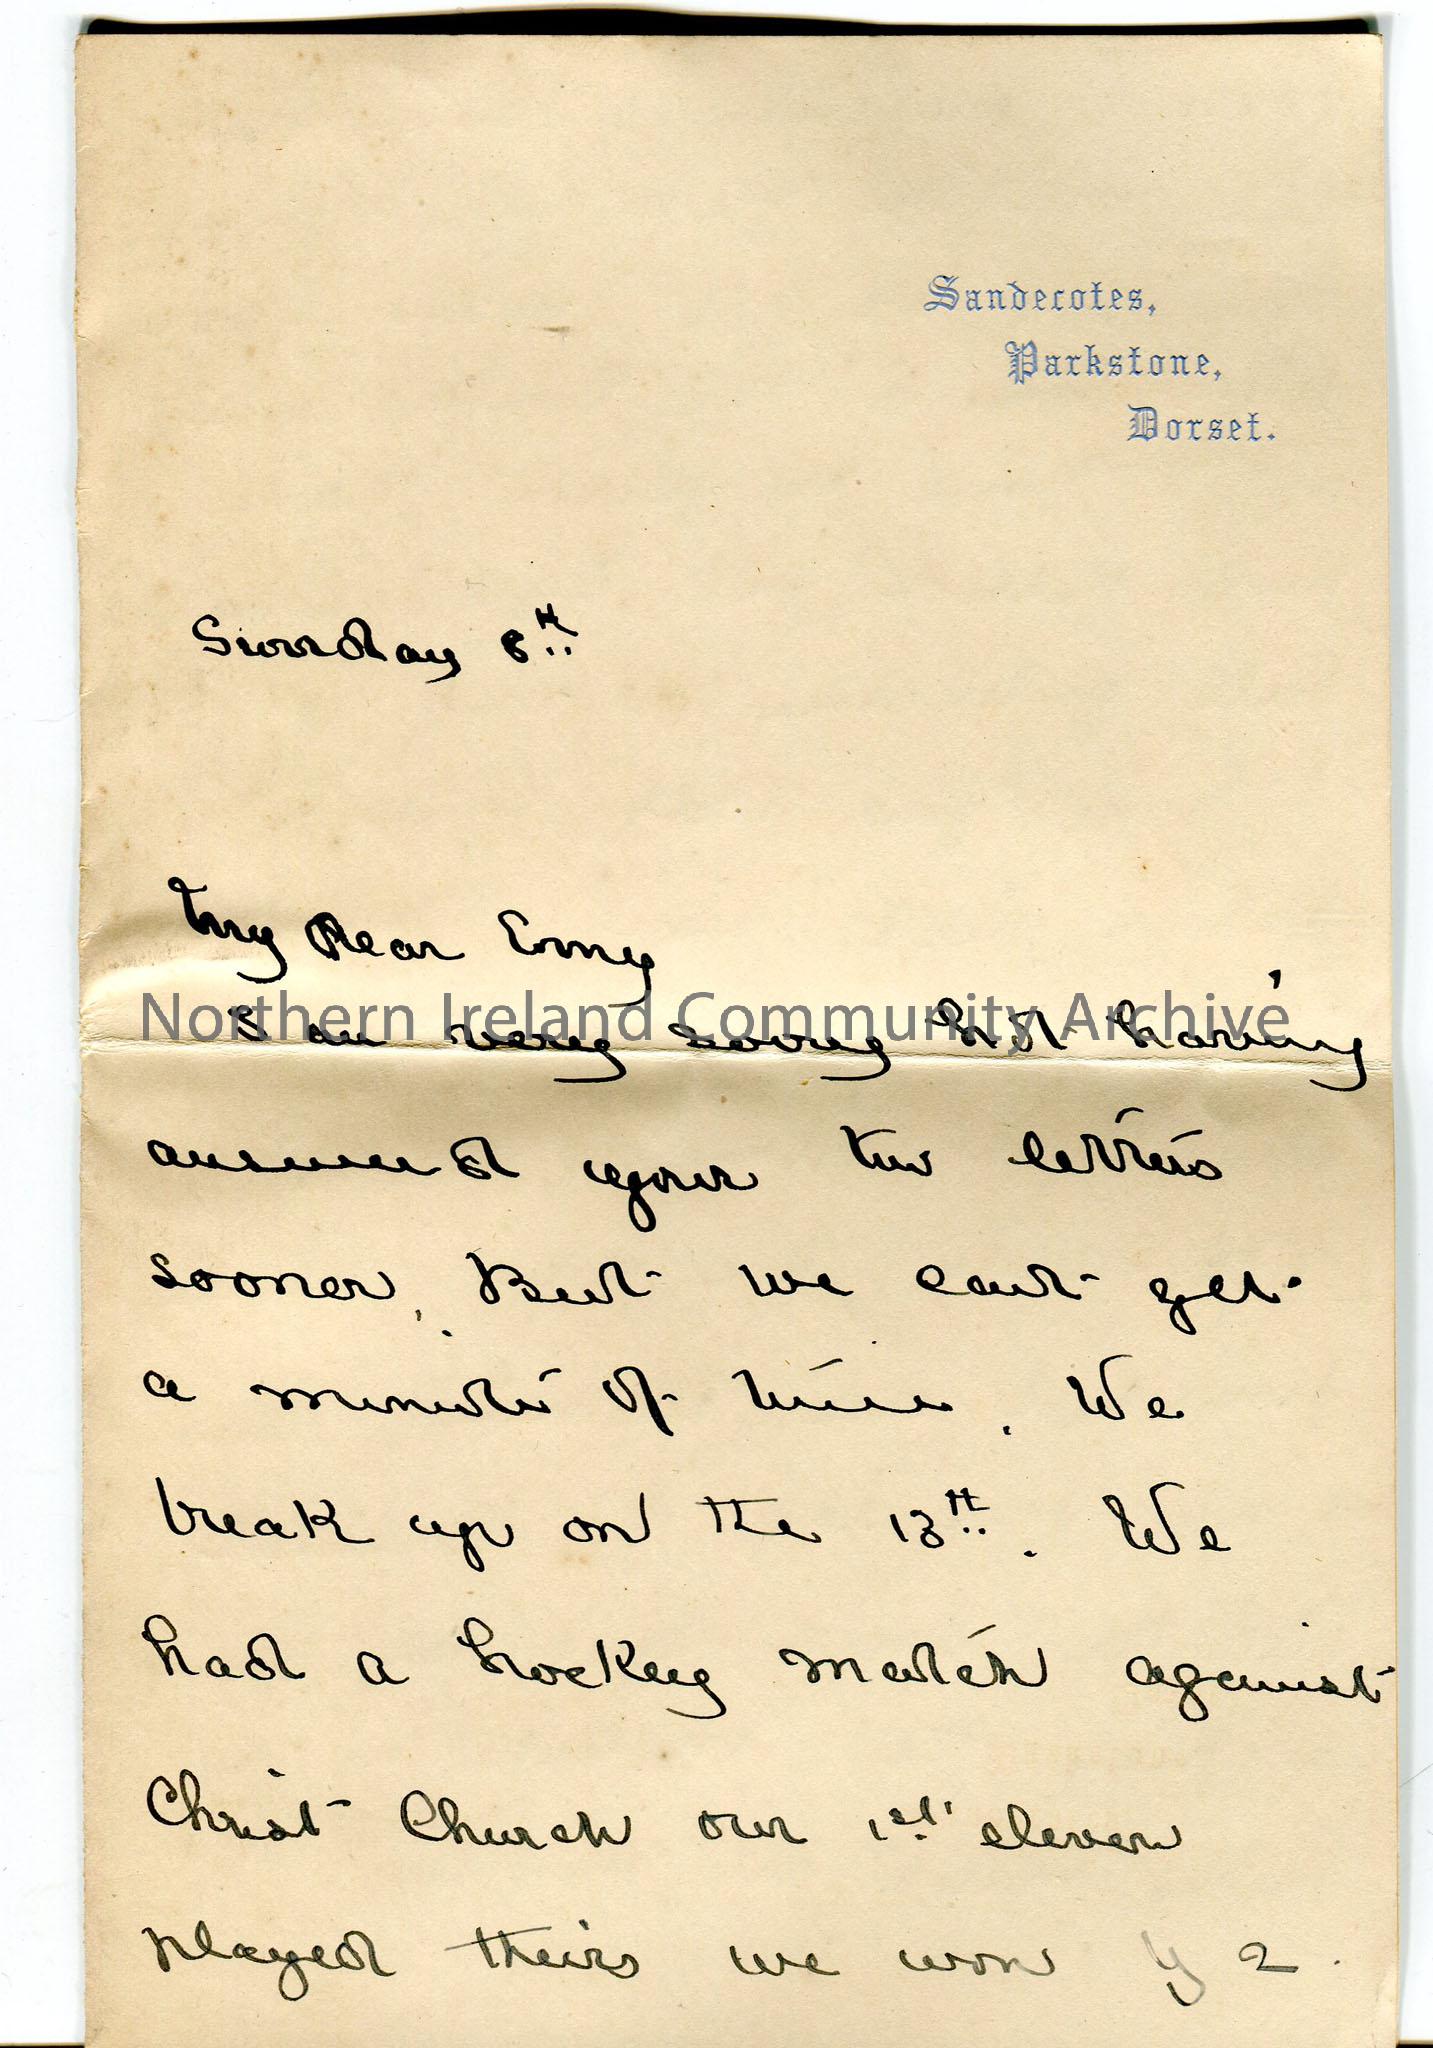 Sandecotes,
Parkstone,
Dorset.
Sunday 8th
My Dear Emy
Northern Ireland Community Archive
I am very sorry not having
answered your two letters
sooner. But we can't get
a minute of time. We
break up on the 13th. We
had a hockey match against
Christ Church our 1st eleven
played theirs we won by 2.